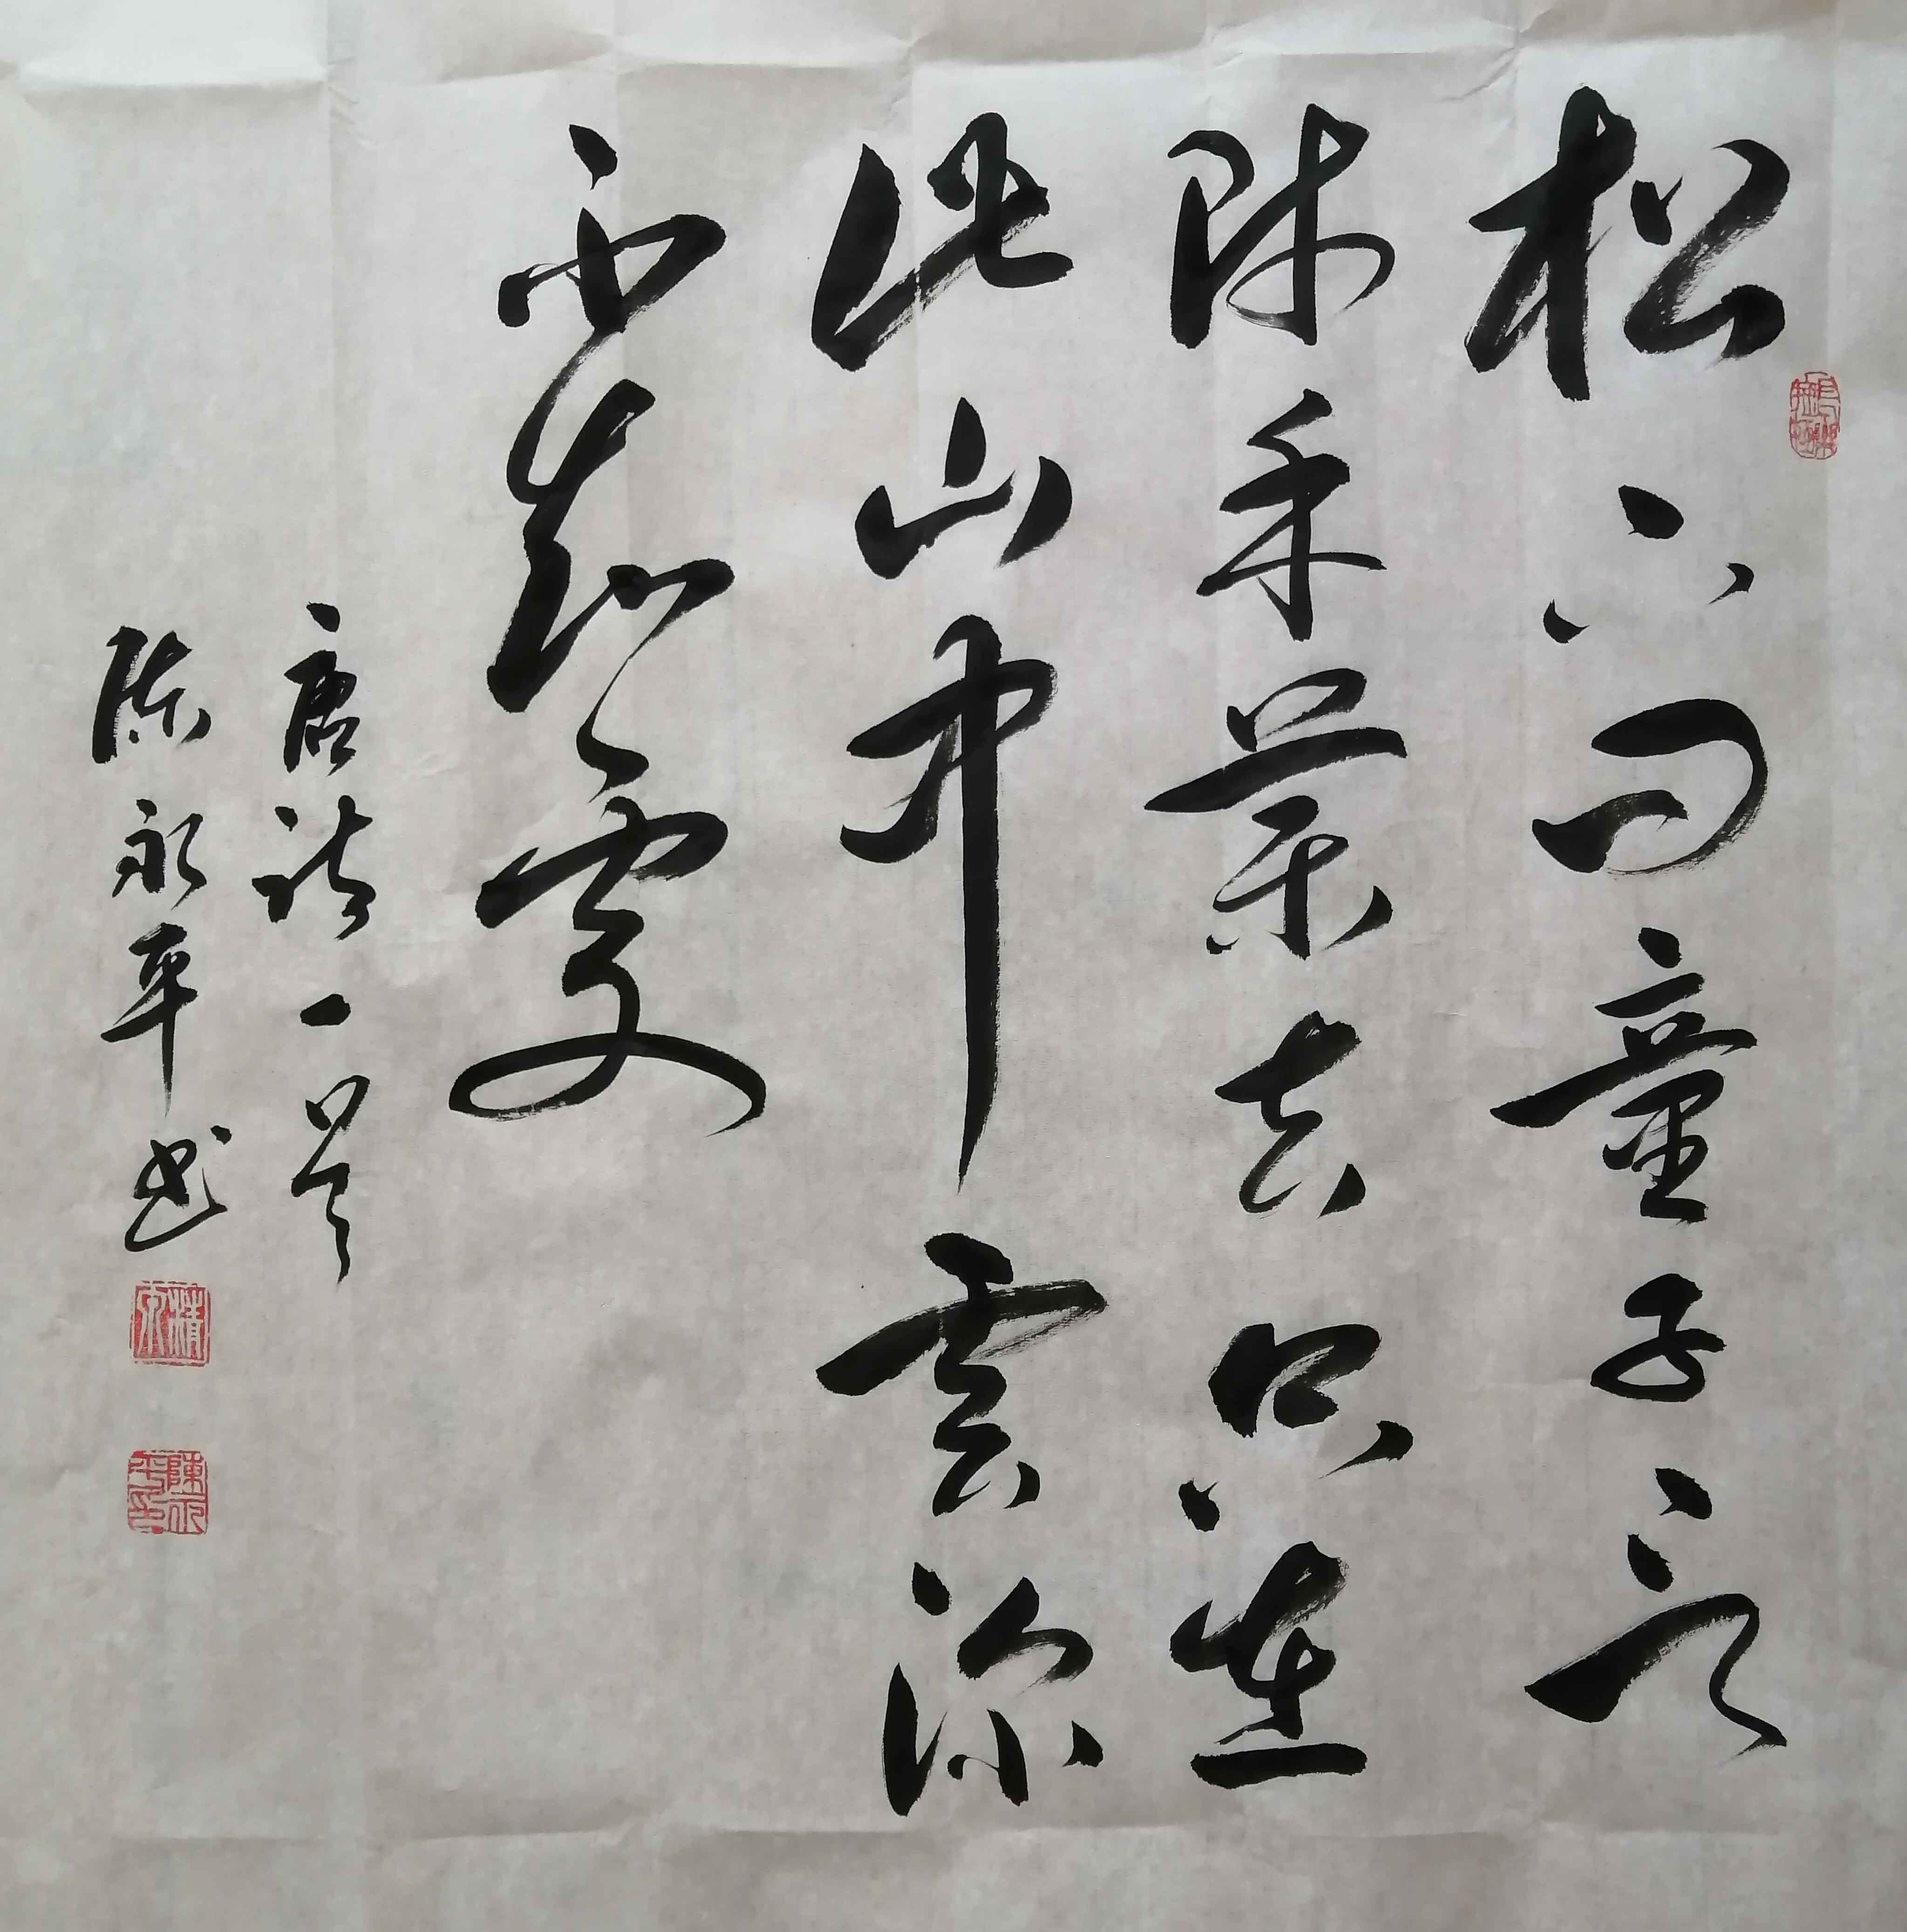 松下问童子言
师采药去只在
此山中雲深
不知處
唐诗一首
陈永平书